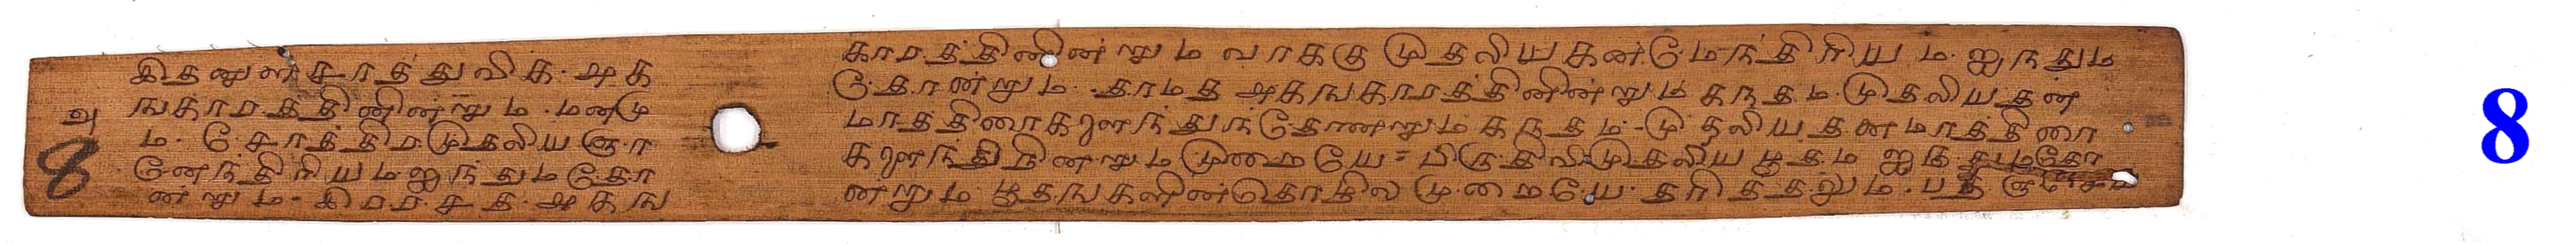 இதனுள சாத்துவிக அக
ஙகாரததினினறும மனமு
ம சோத்திரமுதலிய ஞா
னேந்திரியமஐந்துமதோ
ன்றும இராசத அகங
காரத்தினின்றும வாக்கு முதலியகன்மேந்திரியம ஐந்தும
தோன்றும தாமத அகஙகாரத்தினின்றும கந்தம முதலியதன்
மாத்திரைகளைந்துந்தோணறும கந்தம முதலியதனமாத்திரை
களைந்தினின்றும முறையே பிருதிவிமுதலியபூதம ஐந்
ன்றும பூதஙகளின்தொழில முறையே தரித்தலும
8
8